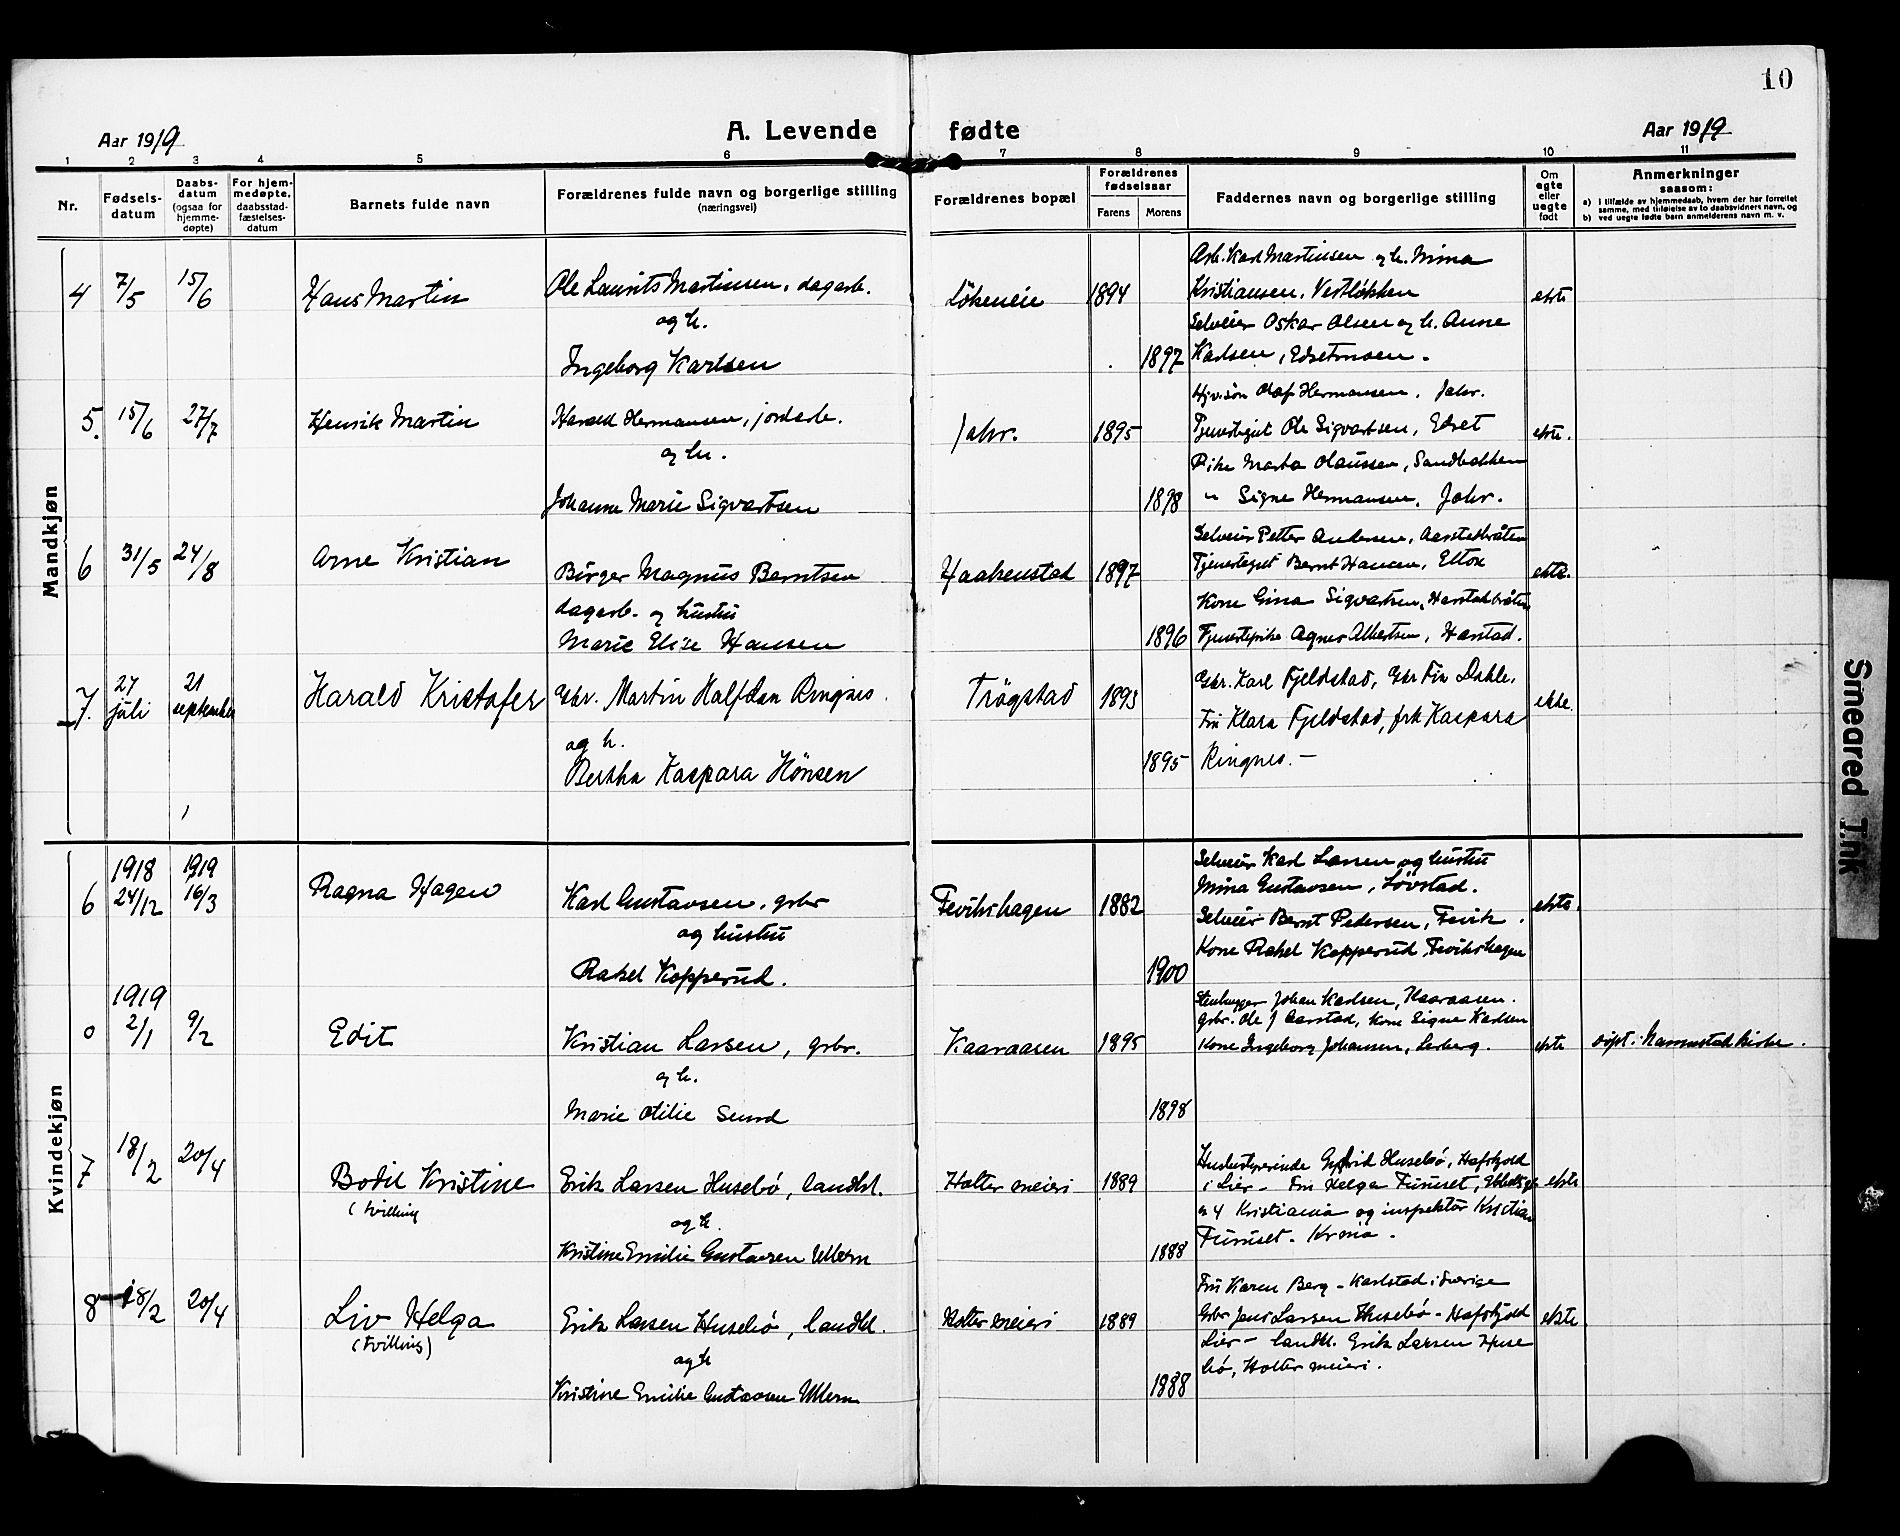 10
Aar 1919
A. Levende fødte
Aar 1919
1 2 3 4 5 6 7 8 9 10 11
Nr.
Fødsels-
datum
Daabs-
datum
(ogsaa for
hjemme-
døpte)
For hjem-
medøpte,
daabsstad-
fæstelses-
datum
Barnets fulde navn
Forældrenes fulde navn og borgerlige stilling
(næringsvei)
Forældrenes bopæl
Forældrenes
fødselsaar
Farens
Morens
Faddernes navn og borgerlige stilling
Om
ægte
eller
uægte
født
Anmerkninger
saasom:
a) i tilfælde av hjemmedaab, hvem der har forrettet
samme, med tilføielse av to daabsvidners navn, og
b) ved uegte fødte barn anmelderens navn m. v.
Mandkjøn
4 7/5 15/6 Hans Martin Ole Laurits Martinsen, dagarb. Lökeneie 1894 ekte
og h.
Ingeborg Karlsen 1897
Arb. Karl Martinsen og h. Mina
Kristiansen, Vestløkken
Selveier Oskar Olsen og h. Anne
Karlsen,
5. 15/6 27/7 Henrik Martin Harald Hermansen, jordarb. Jahr. 1895 ekte.
og hu.
Johanne Marie Sigvartsen 1898
Olaf Hermansen, Jahr.
Ole Sigvartsen, Edset
Pike Marta Olaussen, Sandbakken
" Signe Hermansen, Jahr.
6 31/5 24/8 Arne Kristian Birger Magnus Berntsen Haakenstad 1897 ekte.
dagarb. og hustru
Marie Elise Hansen 1896
Selveier Petter Andersen,
Bernt Hansen,
Kone Gina Sigvartsen,
Tjenestepike Agnes Albertsen, Harstad.
7. 27 juli 21 september Harald Kristofer Gbr. Martin Halfdan Ringnes Trögstad 1893 ekte.
og h.
Bertha Kaspara Hönsen 1895
Gbr. Karl Fjeldstad, Gbr Dahle,
Fru Klara Fjeldstad, frk Kaspara
Ringnes. —
Kvindekjøn
1918 1919
6 24/12 16/3 Ragna Hagen Karl Gustavsen, grbr Fevikshagen 1882 ekte.
og hustru
Rakel Kopperud. 1900
Selveier Karl Larsen og hustru
Mina Gustavsen, Lövstad.
Selveier Bernt Pedersen, Fevik.
Kone Rakel Kopperud, Fevikshagen
1919
0 2/1 9/2 Edit Kristian Larsen, grbr. Kaaraasen 1895 ekte døpt i Mannestad kirke.
og h.
Marie Otilie Sund 1898
Stenhugger Johan Karlsen, Kaaraasen.
grbr. Ole J Aarstad, Kone Signe Karlsen
Kone Ingeborg Johansen,
7 18/2 20/4 Bodil Kristine Erik Larsen Husebö, landhl. Holter meieri 1889 ekte
(tvilling og h.
Kristine Emilie Gustavsen Ullern 1888
Husbestyrerinde Husebö, Hafskjold
i Lier — Fru Helga Furuset,
4 Kristiania og inspektör Kristian
Furuset. Krania.
8 18/2 20/4 Liv Helga Erik Larsen Husebö, landhl. Holter meieri 1889 ekte
(tvilling) og h
Kristine Emilie Gustavsen Ullern 1888
Fru Karen Berg — Karlstad i Sverige
Grbr Jens Larsen Husebö — Hafskjold
Lier — landhl. Erik Larsen Huse
bö, Holter meieri.
Smeared Ink